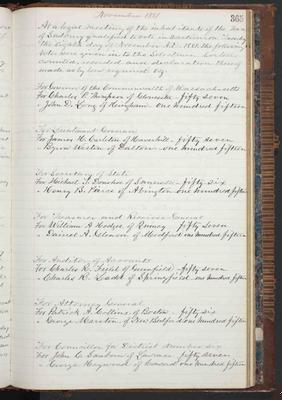 November 1881
365
At a legal meeting of the inhabitants of the Town
of Sudbury qualified to vote in elections on Tuesday
the eighth day of November A.D. 1881 the following
votes were given in to the Selectmen
counted, recorded and declaration thereof
made as by law required by
For Governor of the Commonwealth of Massachusetts
For Charles P. Thompson of Gloucester fifty seven
" John D. Long of Hingham one hundred fifteen
For Lieutenant Governor
For James H. Carleton of Haverhill fifty seven
" Byron Weston of Dalton one hundred fifteen
For Secretary of State
For Michael T. Donohoe of Somerville fifty six
" Henry B. Peirce of Abington one hundred fifteen
For Treasurer and Receiver General
For William A. Hodges of Quincy fifty seven
" Daniel A. Gleason of Medford one hundred fifteen
For Auditor of Accounts
For Charles R. Field of Greenfield fifty seven
" Charles R. Ladd of Springfield one hundred fifteen
For Attorney General
For Patrick A. Collins of Boston fifty six
" George Marston of New Bedford one hundred fifteen
For Councillor for District number six
For John C. Sanborn of Lawrence fifty seven
" George Heywood of Concord one hundred fifteen